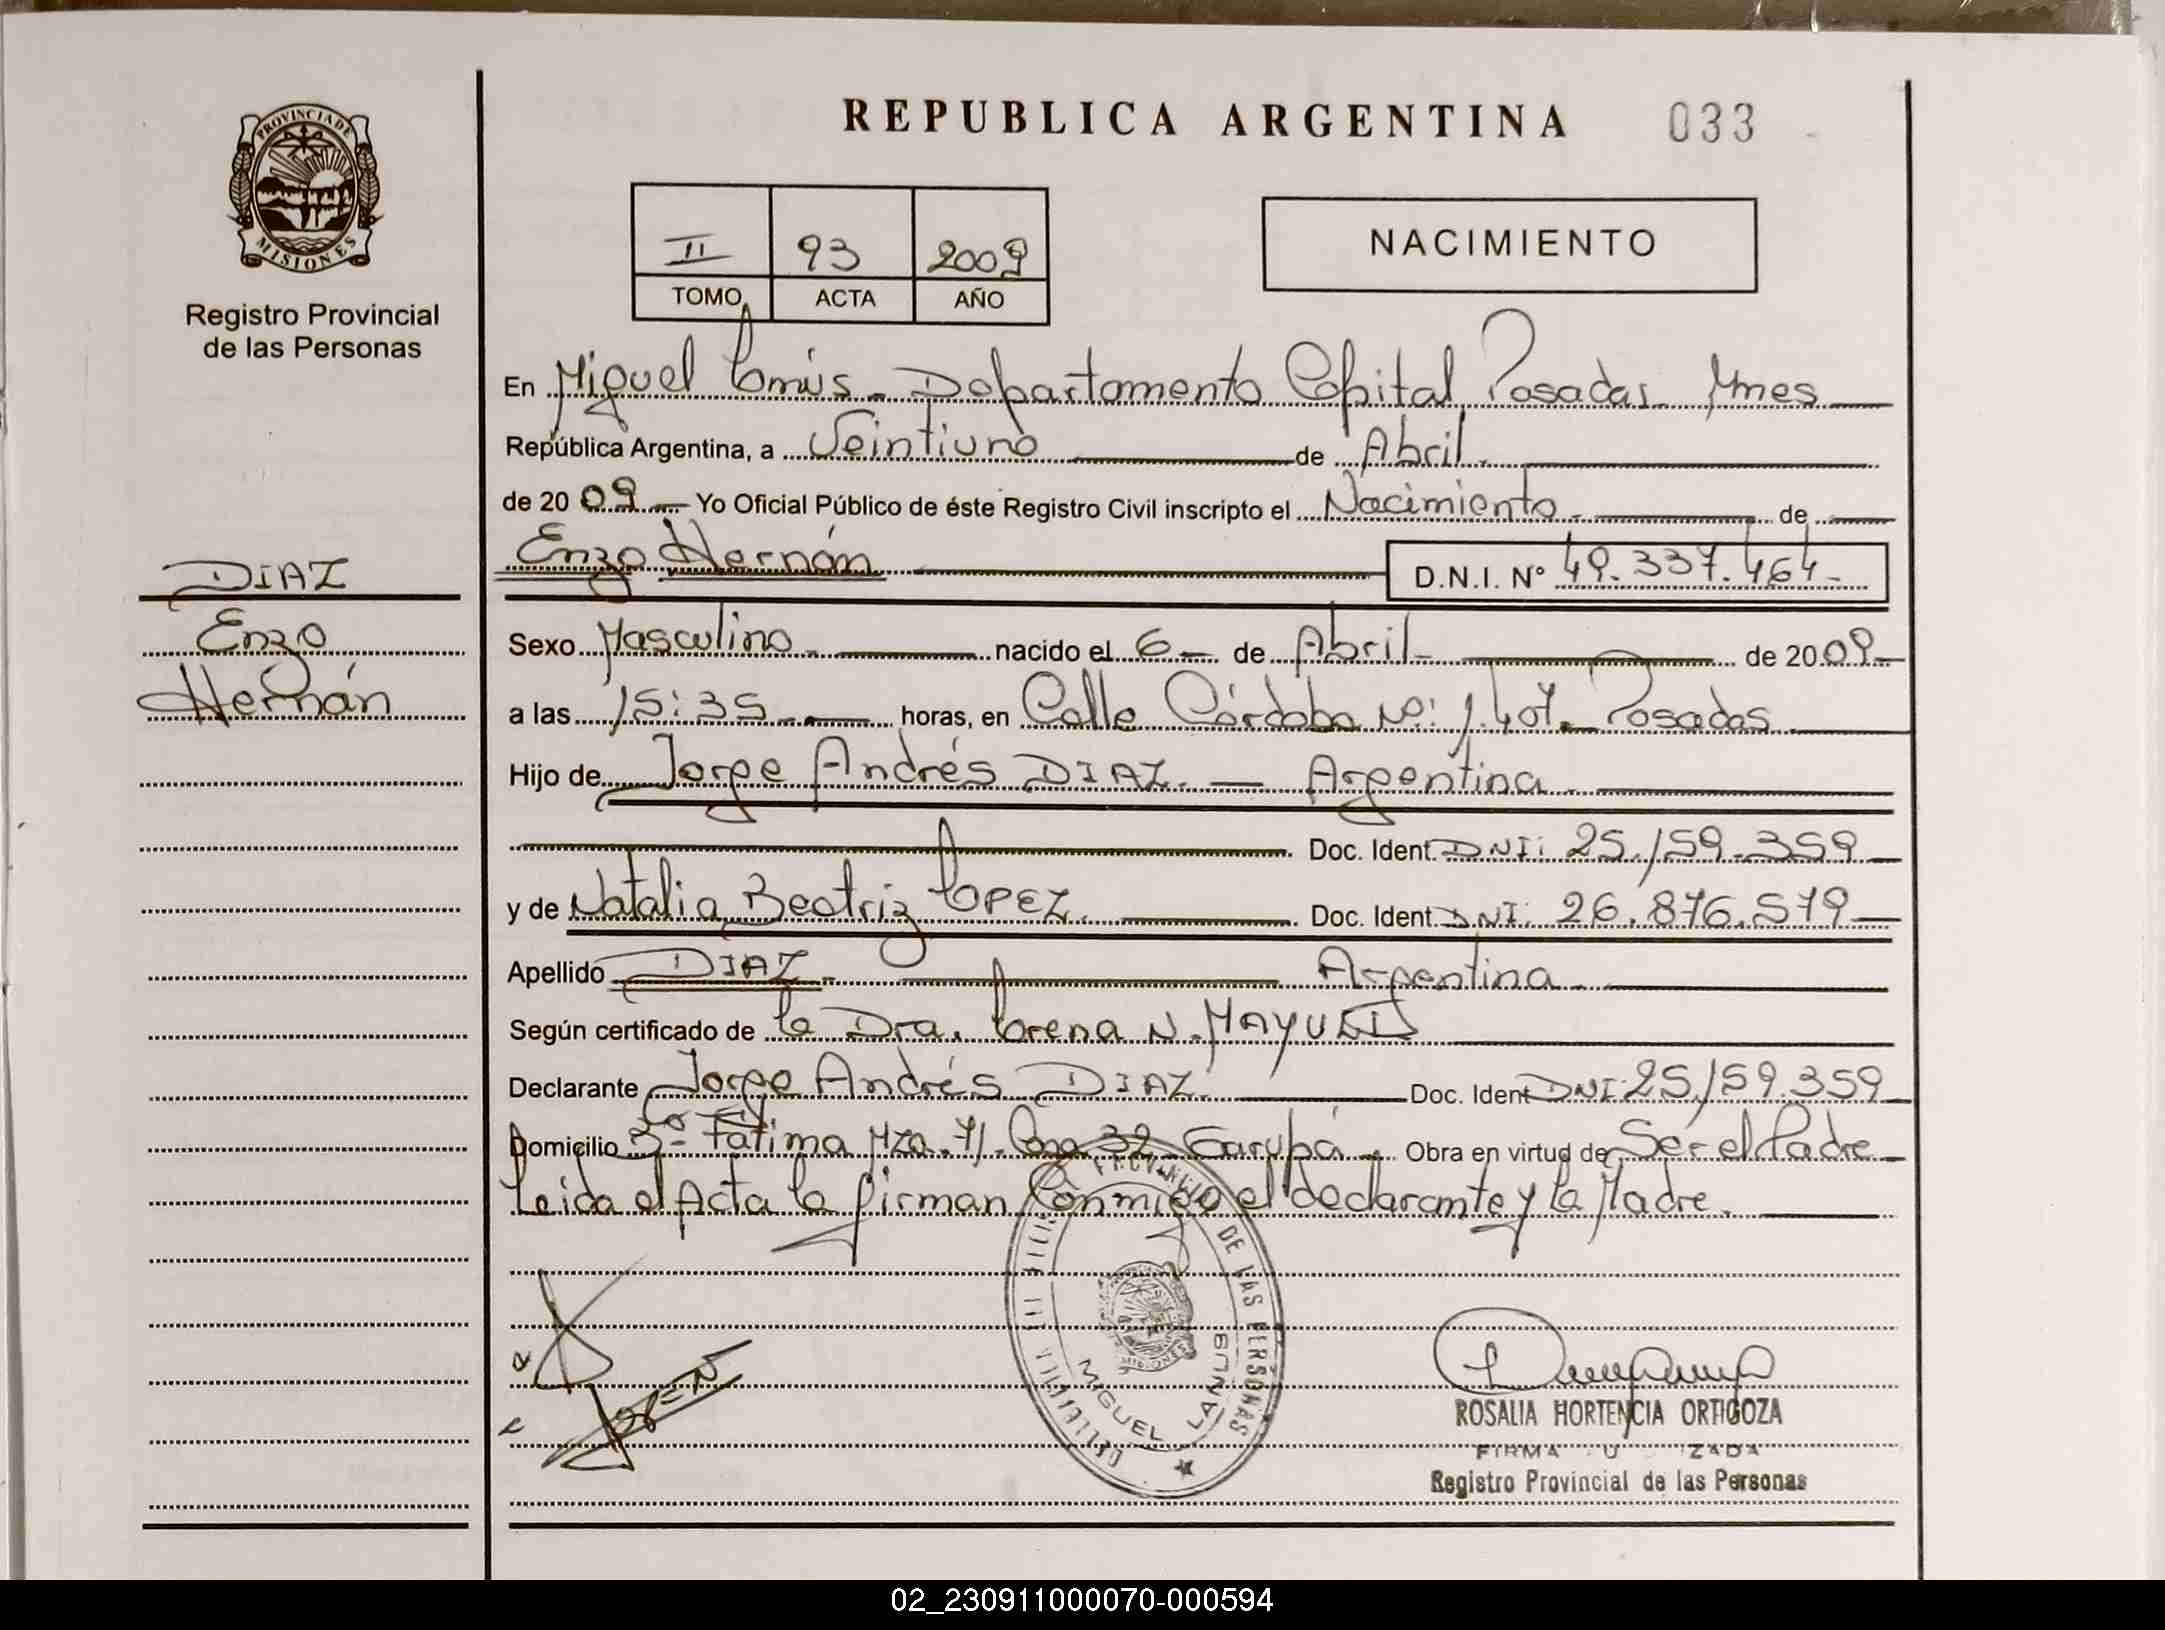 PROVINCIA DE
MISIONES
Registro Provincial
de las Personas
DIAZ
Enzo
Hernán
REPUBLICA ARGENTINA 033
II 93 2009
TOMO ACTA AÑO
NACIMIENTO
En Miguel Lanús - Departamento Capital Posadas Mnes
República Argentina, a Veintiuno de Abril
de 2009 Yo Oficial Público de éste Registro Civil inscripto el Nacimiento de
Enzo Hernán D.N.I. N° 49.337.464
Sexo Masculino nacido el 6 de Abril de 2009
a las 15:35 horas, en Calle Córdoba No: 1.407 Posadas
Hijo de Jorge Andrés DIAZ Argentina
Doc. Ident. DNI: 25.159.359
y de Natalia Beatriz LOPEZ Doc. Ident. DNI: 26.876.579
Apellido DIAZ Argentina
Según certificado de la Dra. Lorena N.
Declarante Jorge Andrés DIAZ Doc. Ident DNI: 25.159.359
Domicilio Bº Fátima Mza. 71. Casa 32 Garupá Obra en virtud de Ser el Padre
Leida el Acta la firman Conmigo el declarante y la Madre.
DE LAS PERSONAS
MIGUEL LANUS
MISIONES
ROSALIA HORTENCIA ORTIGOZA
FIRMA
Registro Provincial de las Personas
02_230911000070-000594